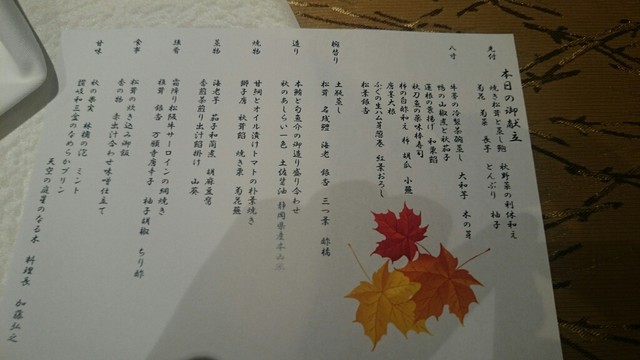 本日の御献立
先付
焼き松茸と蒸し鮑 秋野菜の利休和え
菊花 菊菜 長子 とんぶり 柚子
八寸
牛蒡の冷製茶碗蒸し 大和芋 木の芽
鴨の山椒煮と秋茄子
蓮根の東揚げ 和栗餡
秋刀魚の薬味棒寿司
柿の白酢和え 柿 胡瓜 小蕪
唐墨大根
ふぐの生ハム葱巻 紅葉おろし
松葉銀杏
椀替り
土瓶蒸し
松茸 名残鱧 海老 銀杏 三つ葉 酢橘
造り
本鮪と旬魚介の御造り盛り合わせ
秋のあらい一色 土佐醤油 静岡県産本山葵
焼物
甘鯛とオイル漬けトマトの朴葉焼き
獅子唐 秋茸餡 焼き栗 菊花蕪
蓋物
海老芋 茄子和蘭煮 胡麻豆腐
香煎茶煎り出汁餡掛け 山葵
強肴
霜降り松阪牛サーロインの網焼き
椎茸 銀杏 万願寺唐辛子 柚子胡椒 ちり酢
食事
松茸の炊き込み御飯
香の物 赤出汁合わせ味噌仕立て
甘味
秋の果実 林檎の泡 ミント
讃岐和三盆のなめらかプリン
天空の庭星のなる木 料理長 加藤弘之